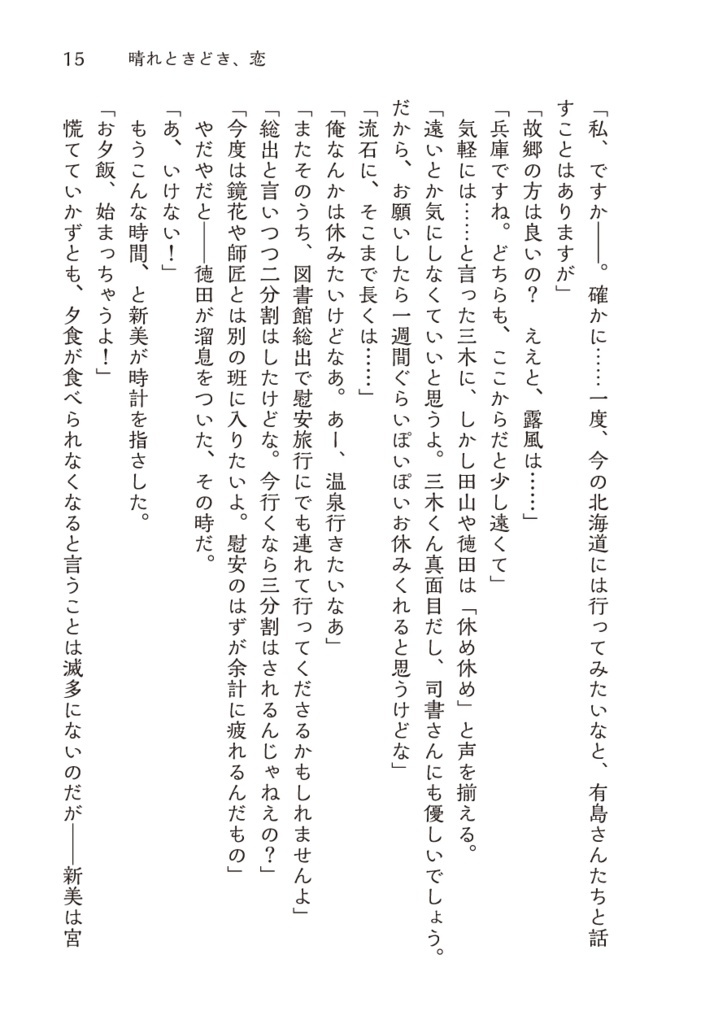 15　晴れときどき、恋
「私、ですか――。確かに……一度、今の北海道には行ってみたいなと、有島さんたちと話
すことはありますが」
「故郷の方は良いの？　ええと、露風は……」
「兵庫ですね。どちらも、ここからだと少し遠くて」
　気軽には……と言った三木に、しかし田山や徳田は「休め休め」と声を揃える。
「遠いとか気にしなくていいと思うよ。三木くん真面目だし、司書さんにも優しいでしょう。
だから、お願いしたら一週間ぐらいぽいぽいお休みくれると思うけどな」
「流石に、そこまで長くは……」
「俺なんかは休みたいけどなあ。あー、温泉行きたいなあ」
「またそのうち、図書館総出で慰安旅行にでも連れて行ってくださるかもしれませんよ」
「総出と言いつつ二分割はしたけどな。今行くなら三分割はされるんじゃねえの？」
「今度は鏡花や師匠とは別の班に入りたいよ。慰安のはずが余計に疲れるんだもの」
　やだやだと――徳田が溜息をついた、その時だ。
「あ、いけない！」
　もうこんな時間、と新美が時計を指さした。
「お夕飯、始まっちゃうよ！」
　慌てていかずとも、夕食が食べられなくなると言うことは滅多にないのだが――新美は宮